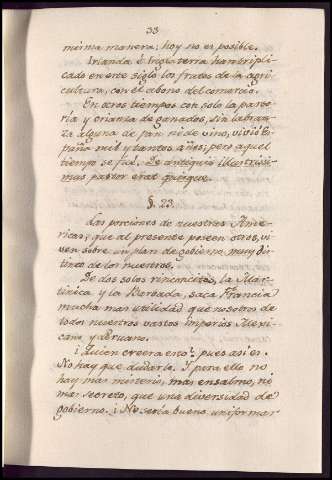 33
misma manera; hoy no es posible.
Irlanda è Inglaterra han tripli-
cado en este siglo los frutos de la agri-
cultura, con el abono del comercio.
En otros tiempos con solo la pasto-
ria y crianza de ganados, sin labran-
za alguna de pan ni de vino, vivió Es-
paña mil y tantos años; pero aquel
tiempo se fué. De antiquis illustrisi-
mus pastor erat quisque.
§. 23.
Las porciones de nuestras Ame-
ricas, que al presente poseen otros, vi-
ven sobre un plan de gobierno muy dis-
tinto de los nuestros.
De dos solos rinconcitos, la Mar-
tinica y la Berbada, saca Francia
mucha mas utilidad que nosotros de
todos nuestros vastos imperios Mexi-
cano y Peruano.
¿Quien creera esto? pues asi es.
No hay que dudarlo. Y para ello no
hay mas misterio, mas ensalmo, ni
mas secreto, que una diversidad de
gobierno. ¿No seria bueno uniformar